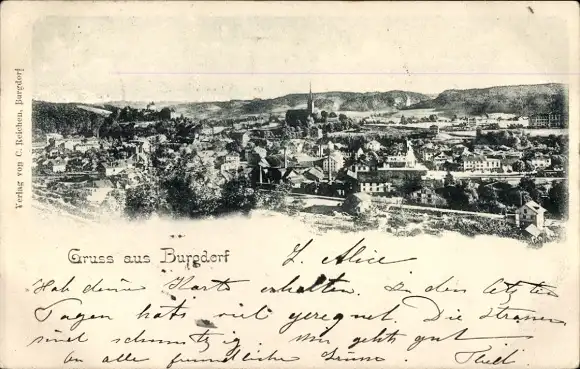 Verlag von C. Reichen, Burgdorf
Gruss aus Burgdorf
L. Alice
Hab deine Karte erhalten. In den letzten
Tagen hats viel geregnet. Die Strassen
sind schmutzig. Mir geht's gut.
An alle freundliche Grüsse.